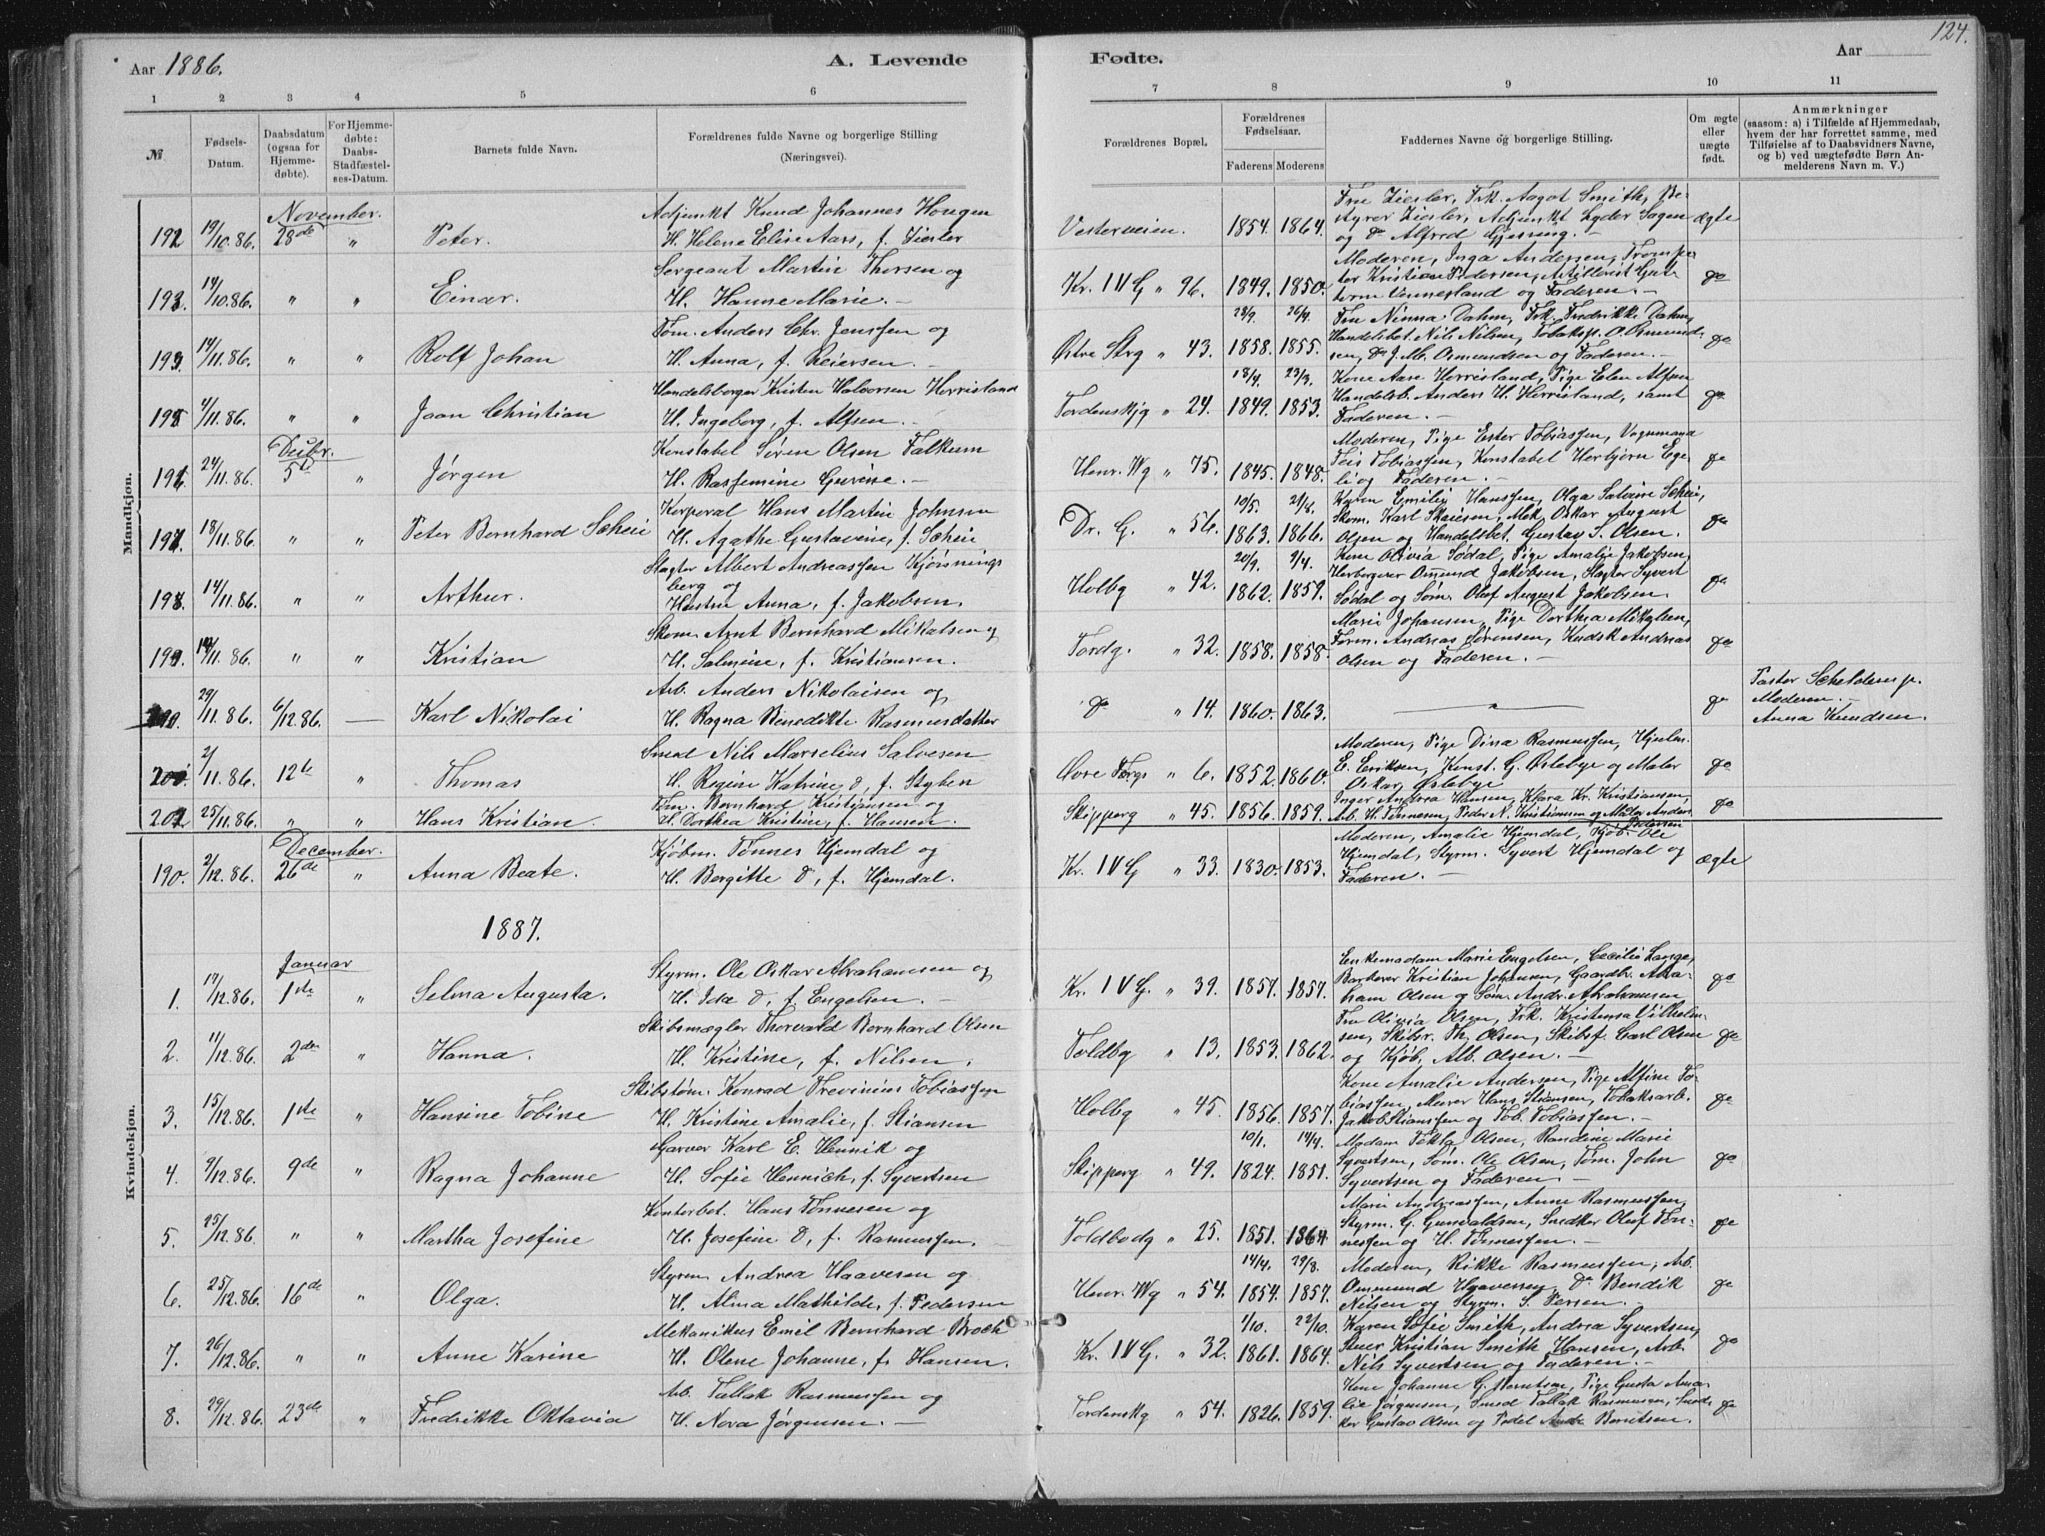 124.
Aar 1886.
A. Levende
Fødte.
Aar
1 2 3 4 5 6 7 8 9 10 11
№
Fødsels-Datum.
Daabsdatum (ogsaa for Hjemme-døbte).
For Hjemme-døbte: Daabs-Stadfæstel-ses-Datum.
Barnets fulde Navn.
Forældrenes fulde Navne og borgerlige Stilling (Næringsvei).
Forældrenes Bopæl.
Forældrenes Fødselsaar.
Faderens Moderens
Faddernes Navne og borgerlige Stilling.
Om ægte eller uægte født.
Anmærkninger
(saasom: a) i Tilfælde af Hjemmedaab, hvem der har forrettet samme, med Tilføielse af to Daabsvidners Navne, og b) ved uægtefødte Børn An-melderens Navn m. V.)
Mandkjøn.
November.
Adjunkt Knud Johannes Hougen
Frue Ziesler, Frk. Aagot Smith, Be-
192 19/10.86. 28de " Peter. H. Helene Elise Aars, f. Ziesler Vesterveien. 1854. 1864. styrer Ziesler, Adjunkt Lyder Sagen ægte
og do Alfred Gjessing. —
Sergeant Martin Thorsen og
Moderen, Inga Andersen, Trompe-
193. 14/10.86. " " Einar. H. Hanne Marie. — Kr. IV G " 96. 1849. 1850. ter Kristian Pedersen, Artillerist Gut- do
torm Vennesland og Faderen. —
Tøm. Anders Chr. Jenssen og
28/9. 26/4. Fru Ninna Dahm, Frk. Fredrikke Dahm,
14/11.86. " " Rolf Johan H. Anna, f. Reiersen. — Østre Strg " 43. 1858. 1855. Handelsbet. Nils Nilsen, Tobaksf. O. Osmund- do
sen, do J. M. Osmundsen og Faderen. —
Handelsborger Kristen Halvorsen Herrisland
18/4. 23/3. Kone Aase Herrisland, Pige Elen Alfsen
195 4/11.86. " " Jaan Christian H. Ingeborg, f. Alfsen. Tordenskjg " 24. 1849. 1853. Handelsb. Anders H. Herrisland, samt do
Faderen. —
Debr.
Konstabel Søren Olsen Falkum
Moderen, Pige Ester Tobiassen, Vognmand
196 24/11.86. 5te " Jørgen H. Rassemine Gurine. — Henr. Wg " 75. 1845. 1848. Teis Tobiassen, Konstabel Herbjørn Ege- do
li og Faderen. —
Korporal Hans Martin Johnsen
10/5. 21/8. Karen Emilie Hanssen, Olga Salvine Scheie,
197. 18/11.86. " " Peter Bernhard Scheie H. Agathe Gustavine, f. Scheie Dr. G. " 56. 1863. 1866. Skom. Karl Skaiesen, Mek. Oskar August do
Olsen og Handelsbet. Gustav S. Olsen.
Slagter Albert Andreassen Kjønnings
20/9. 2/4. Kone Olivia Sødal, Pige Amalie Jakobsen,
198. 14/11.86. " " Arthur. berg og Holbg " 42. 1862. 1859. Herbergerer Omund Jakobsen, Slagter Syvert do
Hustru Anna, f. Jakobsen. Sødal og Søm. Oluf August Jakobsen.
Skom. Arnt Bernhard Mikalsen og
Marie Johansen, Pige Dorthea Mikalsen,
199. 14/11.86. " " Kristian H. Salmine, f. Kristiansen. Tordg. " 32. 1858. 1858. Form. Andreas Sørensen, Kudsk Andreas do
Olsen og Faderen. —
Arb. Anders Nikolaisen og
Pastor Schelderup.
200. 29/11.86. 6/12.86. — Karl Nikolai H. Ragna Benedikte Rasmusdatter do " 14. 1860. 1863. — do Moderen. —
Anna Knudsen.
Smed Nils Marselius Salvesen
Moderen, Pige Dina Rasmussen, Hjulm.
201. 2/11.86. 12te " Thomas H. Regine Katrine D, f. Styhen Øvre Torgs " 6. 1852 1860. E. Eriksen, Konst. G. Østebye og Maler do
Oskar Østebye
Tøm. Bernhard Kristiansen og
Inger Andrea Hansen, Klara Kr. Kristiansen,
202 25/11.86. " " Hans Kristian. H. Dorthea Kristine, f. Hansen. Skipperg " 45. 1856. 1859. Arb. H. Tønnesen, Peder N. Kristiansen og Maler Anders do
Pedersen
Kvindekjøn.
December.
Kjøbm. Tønnes Hjemdal og
Moderen, Amalie Hjemdal, Kjøb. Ole
190. 2/12.86. 26de " Anna Beate. H. Bergitte D, f. Hjemdal. Kr. IV G " 33. 1830. 1853. Hjemdal, Styrm. Syvert Hjemdal og ægte
Faderen. —
1887.
Januar
Styrm. Ole Oskar Abrahamsen og
Enkemadam Marie Engelsen, Cecilie Lange,
1. 17/12.86. 1ste " Selma Augusta. H. Ida D, f. Engelsen. — Kr. IV G. " 39. 1857. 1857. Barberer Kristian Johansen, Gaardbr. Abra- do
ham Olsen og Søm. Andr. Abrahamsen
Skibsmægler Thorvald Bernhard Olsen
Fru Olivia Olsen, Frk. Kristensa Vilhelm-
2. 11/12.86. 2den " Hanna. H. Kristine, f. Nilsen. Toldbg " 13. 1853. 1862. sen, Skibsr. Th. Olsen, Skibsf. Carl Olsen do
og Kjøb. Alb. Olsen. —
Skibstøm. Konrad Trevinius Tobiassen
Kone Amalie Andersen, Pige Alfine To-
3. 15/12.86. 1ste " Hansine Tobine H. Kristine Amalie, f. Stiansen Holbg " 45. 1856. 1857. biassen, Murer Hans Stiansen, Tobaksarb. do
Jakob Stianssen og Tob. Tobiassen. —
Garver Karl E. Hennik og
10/1. 14/4. Madam Tekla Olsen, Randine Marie
4. 9/12.86. 9de " Ragna Johanne H. Sofie Hennich, f. Syvertsen Skipperg " 49. 1824. 1851. Syvertsen, Søm. Ole Olsen, Tøm. John do
Syvertsen og Faderen. —
Kontorbet. Hans Tønnesen og
Marie Andreassen, Anne Rasmussen,
5. 25/12.86. " " Martha Josefine H. Josefine D, f. Rasmussen. Toldbodg " 25. 1851. 1864. Styrm. G. Gunvaldsen, Snedker Oluf Tøn- do
nessen og H. Tønnessen. —
Styrm. Andrea Haavesen og
14/4. 29/8. Moderen, Rikke Rasmussen, Arb.
6. 25/12.86. 16de " Olga. H. Alma Mathilde, f. Pedersen Henr. Wg " 54. 1854. 1857. Ommund Haavesen, do Bendik do
Nilsen og Styrm. S. Persen.
Mekanikus Emil Bernhard Broch
1/10. 22/10. Karen Sofie Smith, Andrea Syvertsen,
7. 26/12.86. " " Anne Karine H. Olene Johanne, f. Hansen. Kr. IV G. " 32. 1861. 1864. Stuer Kristian Smith Hansen, Arb. do
Nils Syvertsen og Faderen. —
Arb. Tallak Rasmussen og
Kone Johanne G. Berntsen, Pige Gusta Ama-
8. 29/12.86. 23de " Fredrikke Oktavia H. Nova Jørgensen. — Tordenskg " 54. 1826. 1859. lie Jørgensen, Smed Tallak Rasmussen, Sned- do
ker Gustav Olsen og Pedel Berntsen.